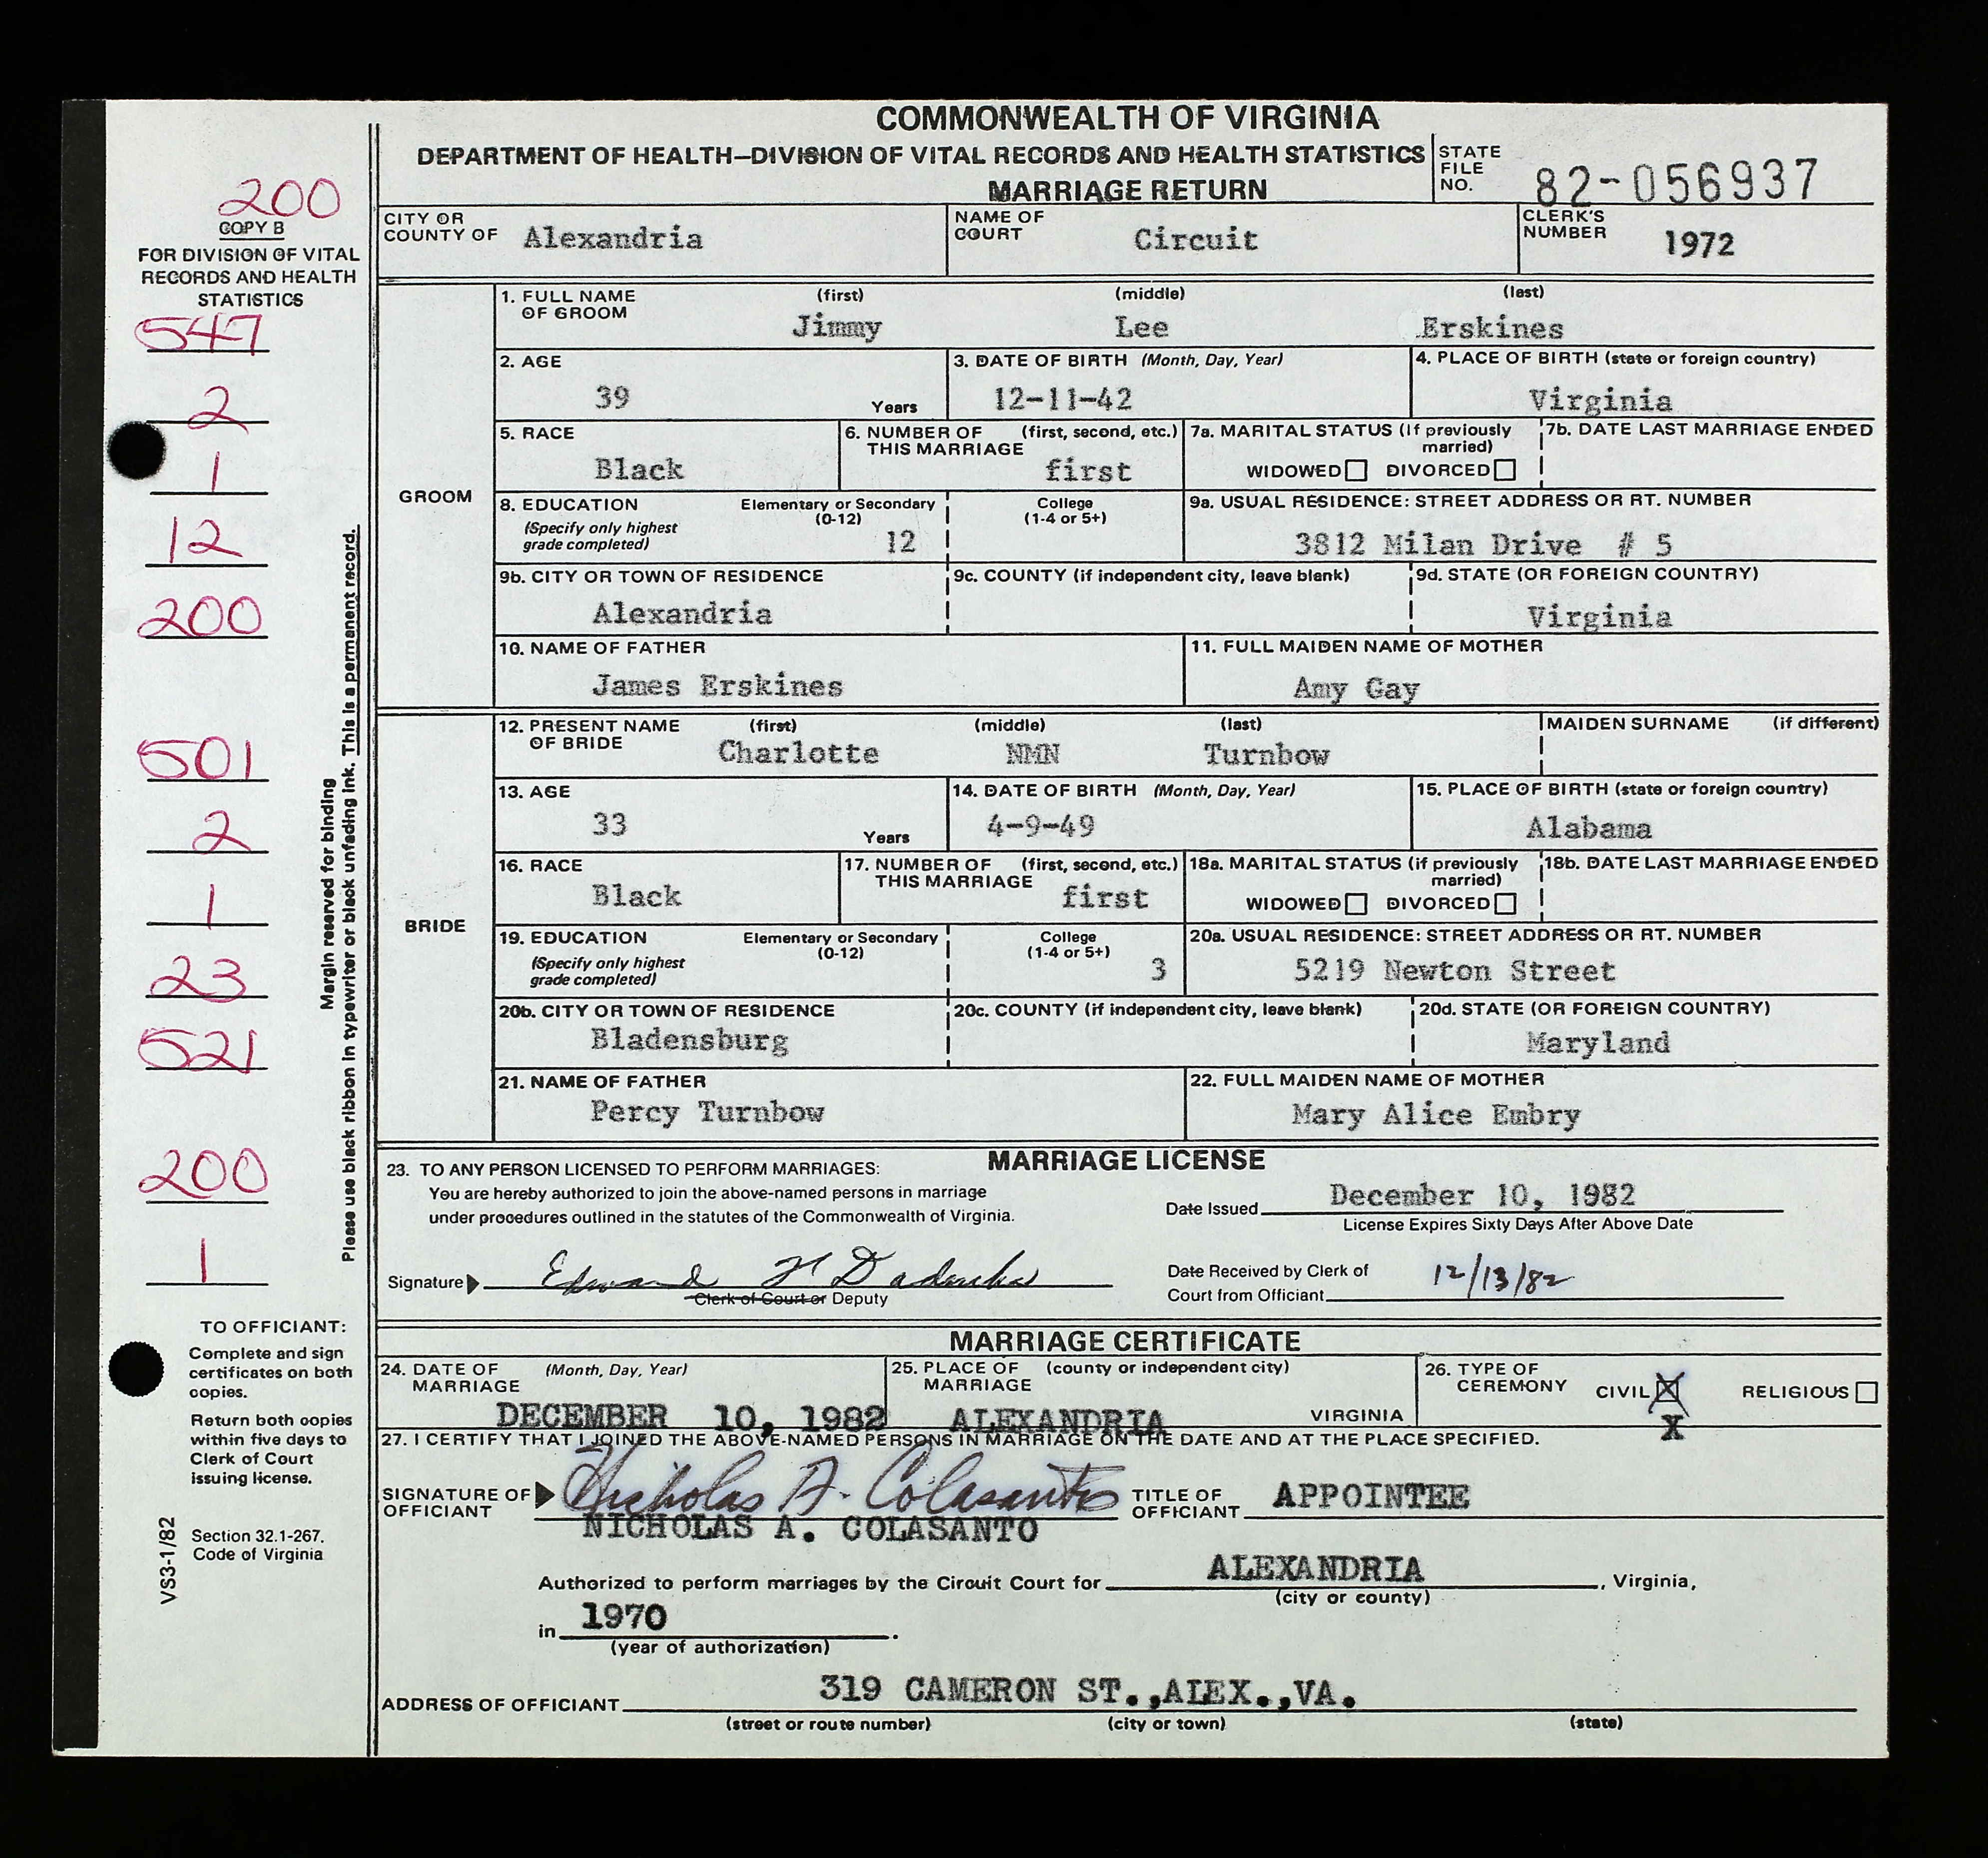 COMMONWEALTH OF VIRGINIA
DEPARTMENT OF HEALTH—DIVISION OF VITAL RECORDS AND HEALTH STATISTICS
MARRIAGE RETURN
STATE FILE NO. 82-056937
200
COPY B
FOR DIVISION OF VITAL
RECORDS AND HEALTH
STATISTICS
547
2
1
12
200
501
2
1
23
521
200
1
Margin reserved for binding
Please use black ribbon in typewriter or black unfading ink. This is a permanent record.
TO OFFICIANT:
Complete and sign
certificates on both
copies.
Return both copies
within five days to
Clerk of Court
issuing license.
Section 32.1-267,
Code of Virginia
VS3-1/82
CITY OR COUNTY OF Alexandria NAME OF COURT Circuit CLERK'S NUMBER 1972
GROOM
1. FULL NAME OF GROOM (first) (middle) (last)
Jimmy Lee Erskines
2. AGE 3. DATE OF BIRTH (Month, Day, Year) 4. PLACE OF BIRTH (state or foreign country)
39 Years 12-11-42 Virginia
5. RACE 6. NUMBER OF THIS MARRIAGE (first, second, etc.) 7a. MARITAL STATUS (if previously married) 7b. DATE LAST MARRIAGE ENDED
Black first WIDOWED DIVORCED
8. EDUCATION (Specify only highest grade completed) Elementary or Secondary (0-12) College (1-4 or 5+) 9a. USUAL RESIDENCE: STREET ADDRESS OR RT. NUMBER
12 3812 Milan Drive # 5
9b. CITY OR TOWN OF RESIDENCE 9c. COUNTY (if independent city, leave blank) 9d. STATE (OR FOREIGN COUNTRY)
Alexandria Virginia
10. NAME OF FATHER 11. FULL MAIDEN NAME OF MOTHER
James Erskines Amy Gay
BRIDE
12. PRESENT NAME OF BRIDE (first) (middle) (last) MAIDEN SURNAME (if different)
Charlotte NMN Turnbow
13. AGE 14. DATE OF BIRTH (Month, Day, Year) 15. PLACE OF BIRTH (state or foreign country)
33 Years 4-9-49 Alabama
16. RACE 17. NUMBER OF THIS MARRIAGE (first, second, etc.) 18a. MARITAL STATUS (if previously married) 18b. DATE LAST MARRIAGE ENDED
Black first WIDOWED DIVORCED
19. EDUCATION (Specify only highest grade completed) Elementary or Secondary (0-12) College (1-4 or 5+) 20a. USUAL RESIDENCE: STREET ADDRESS OR RT. NUMBER
3 5219 Newton Street
20b. CITY OR TOWN OF RESIDENCE 20c. COUNTY (if independent city, leave blank) 20d. STATE (OR FOREIGN COUNTRY)
Bladensburg Maryland
21. NAME OF FATHER 22. FULL MAIDEN NAME OF MOTHER
Percy Turnbow Mary Alice Embry
MARRIAGE LICENSE
23. TO ANY PERSON LICENSED TO PERFORM MARRIAGES:
You are hereby authorized to join the above-named persons in marriage
under procedures outlined in the statutes of the Commonwealth of Virginia.
Date Issued December 10, 1982
License Expires Sixty Days After Above Date
Signature Edward H
Clerk of Court or Deputy
Date Received by Clerk of
Court from Officiant 12/13/82
MARRIAGE CERTIFICATE
24. DATE OF MARRIAGE (Month, Day, Year) 25. PLACE OF MARRIAGE (county or independent city) 26. TYPE OF CEREMONY CIVIL X RELIGIOUS
DECEMBER 10, 1982 ALEXANDRIA VIRGINIA X
27. I CERTIFY THAT I JOINED THE ABOVE-NAMED PERSONS IN MARRIAGE ON THE DATE AND AT THE PLACE SPECIFIED.
SIGNATURE OF OFFICIANT Nicholas A. Colasanto TITLE OF OFFICIANT APPOINTEE
NICHOLAS A. COLASANTO
Authorized to perform marriages by the Circuit Court for ALEXANDRIA, Virginia,
(city or county)
in 1970.
(year of authorization)
ADDRESS OF OFFICIANT 319 CAMERON ST.,ALEX.,VA.
(street or route number) (city or town) (state)